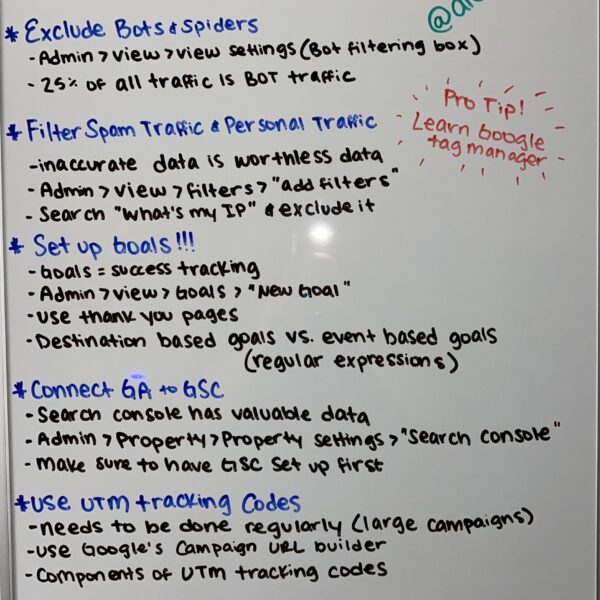 * Exclude Bots & Spiders
- Admin > view > view settings (Bot filtering box)
- 25% of all traffic is BOT traffic
Pro Tip!
Learn Google
tag manager
* Filter Spam Traffic & Personal Traffic
- inaccurate data is worthless data
- Admin > view > filters > "add filters"
- Search "what's my IP" & exclude it
* Set up Goals!!!
- Goals = success tracking
- Admin > view > Goals > "New Goal"
- use thank you pages
- Destination based goals vs. event based goals
(regular expressions)
* Connect GA to GSC
- Search console has valuable data
- Admin > Property > Property settings > "Search Console"
- make sure to have GSC set up first
* Use UTM tracking Codes
- needs to be done regularly (large campaigns)
- use Google's Campaign URL builder
- Components of UTM tracking codes